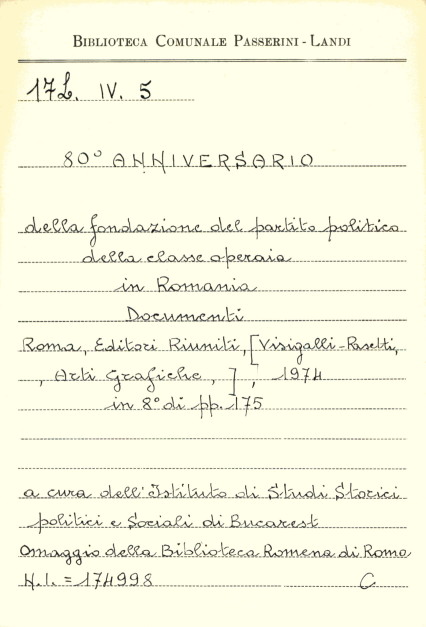 BIBLIOTECA COMUNALE PASSERINI - LANDI
17L. IV. 5
80° ANNIVERSARIO
della fondazione del partito politico
della classe operaia
in Romania
Documenti
Roma, Editori Riuniti, [Visigalli-Pasetti,
, Arti Grafiche, ] , 1974
in 8° di pp. 175
a cura dell'Istituto di Studi Storici
politici e Sociali di Bucarest
Omaggio della Biblioteca Romena di Roma
N.I. = 174998 C